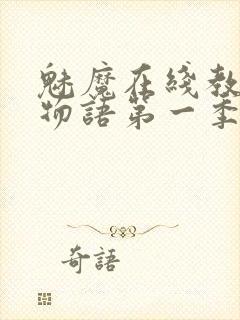 魅魔在线教
物語第一季
奇語